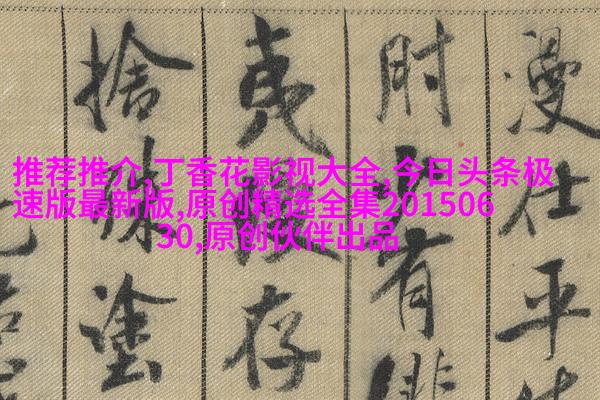 推荐推介,丁香花影视大全,今日头条极
速版最新版,原创精选全集201506
30,原创伙伴出品
漫仕平
时有
夷存
捨珠塗